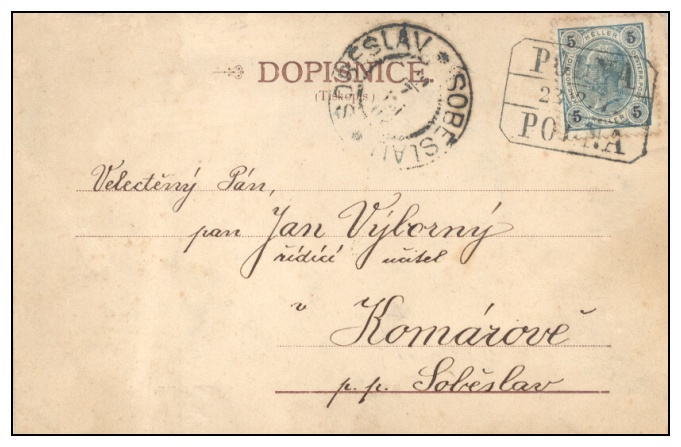 DOPISNICE
(Tiskopis.)
SOBĚSLAV * SOBESLAU *
5 HELLER 5
5 HELLER 5
POLNA
POLNÁ
Velectěný Pán,
pan Jan Výborný
řídící učitel
v Komárově
p. p. Soběslav